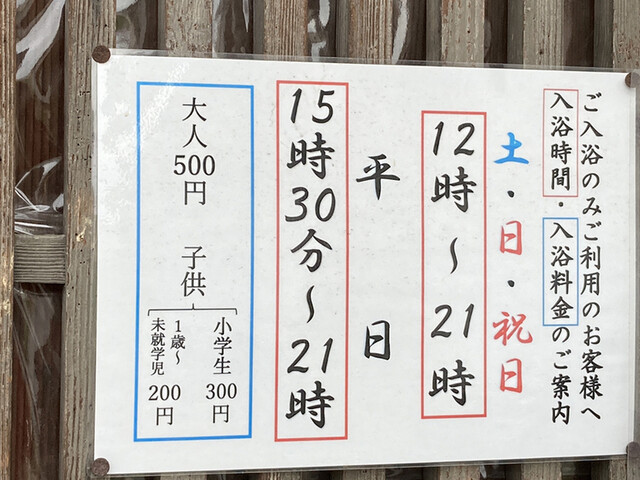 ご入浴のみご利用のお客様へ
入浴時間・入浴料金のご案内
土・日・祝日
12時～21時
平日
15時30分～21時
大人500円 子供
小学生300円
1歳～未就学児200円